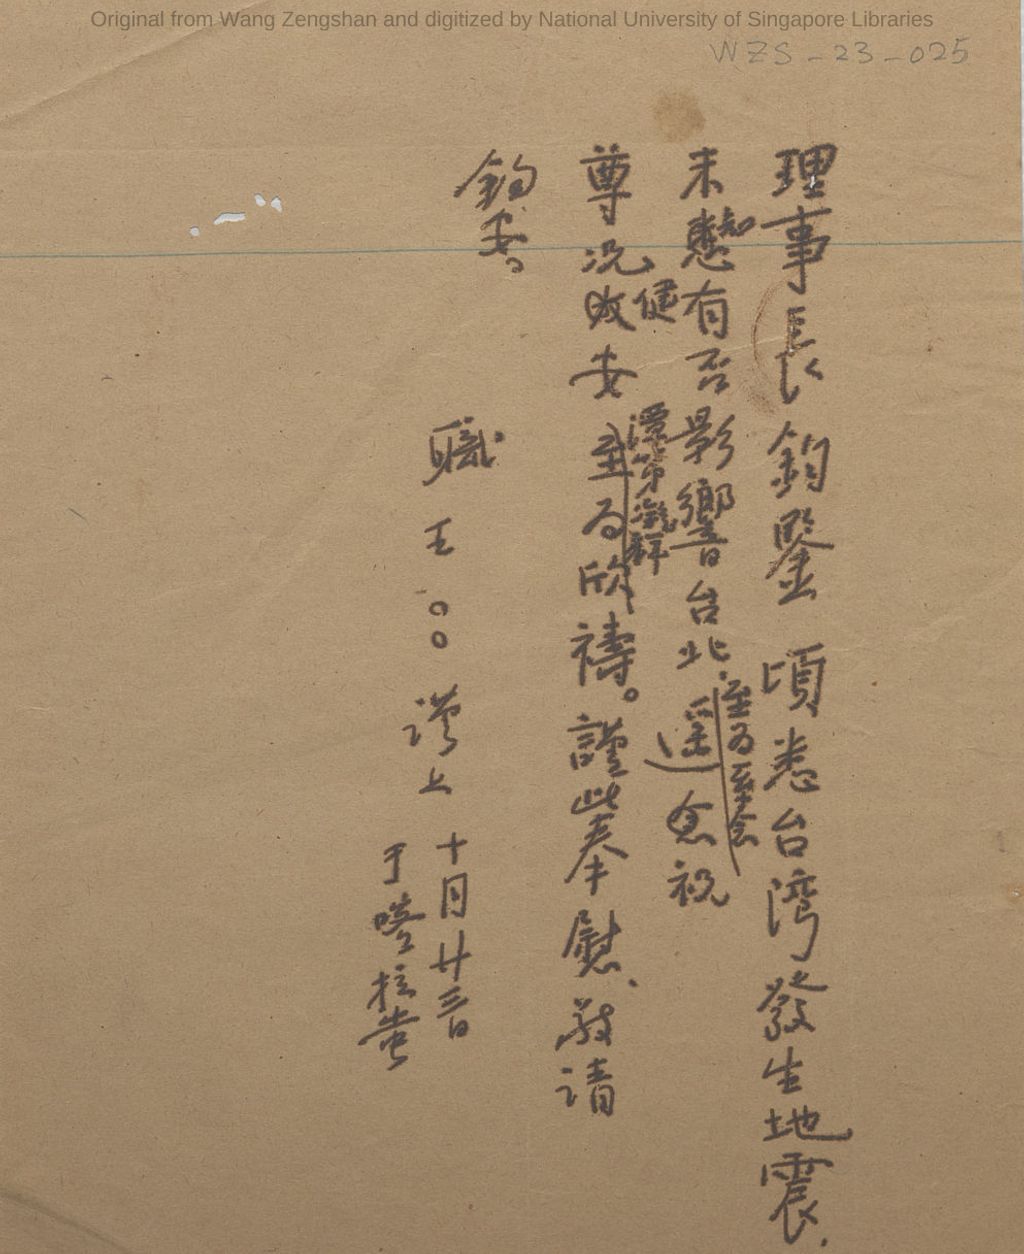 Original from Wang Zengshan and digitized by National University of Singapore Libraries
WZS-23-025
理事長鈞鑒 頃悉台湾發生地震.
未知有否影響台北.遥念祝
至為至念
尊況健安至為欣禱。謹此奉慰、敬请
鈞安。
職 王○○ 谨上 十月廿三日
于喀